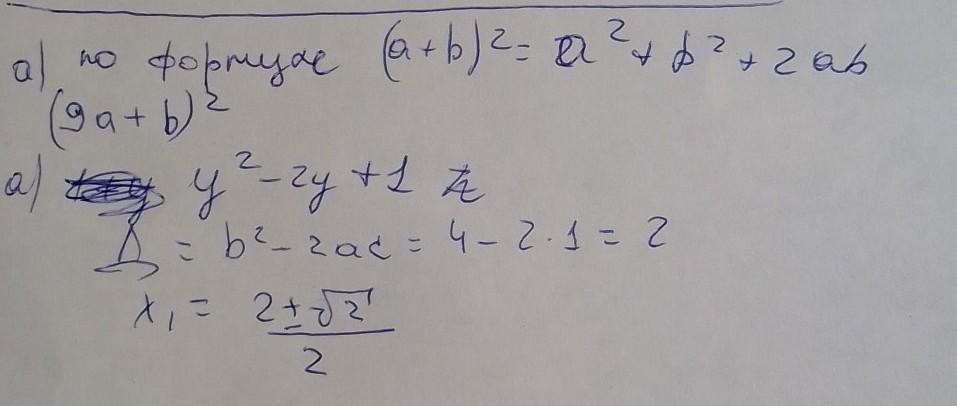 а) по формуле (a+b)² = a² + b² + 2ab
(9a+b)²
а) y² - 2y + 1
Д = b² - 2ac = 4 - 2·1 = 2
x₁ = (2±√2)/2